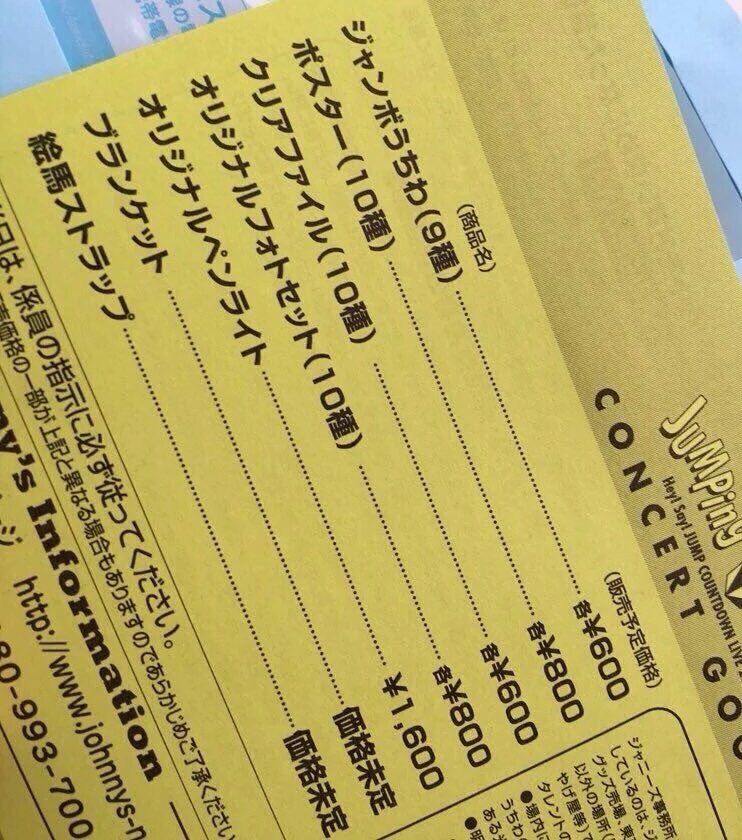 JUMPing
Hey! Say! JUMP COUNTDOWN LIVE
CONCERT GOO
(商品名) (販売予定価格)
ジャンボうちわ(9種) 各¥600
ポスター(10種) 各¥800
クリアファイル(10種) 各¥600
オリジナルフォトセット(10種) 各¥800
オリジナルペンライト ¥1,600
ブランケット 価格未定
絵馬ストラップ 価格未定
当日は、係員の指示に必ず従ってください。
売価格の一部が上記と異なる場合もありますのであらかじめご了承ください
ny's Information
ジ http://www.johnnys-n
80-993-700
ジャニーズ事務所
しているのは、
グッズ売場、
以外の場所(
やげ屋等)
タレントの
●場内
うちわ
ある